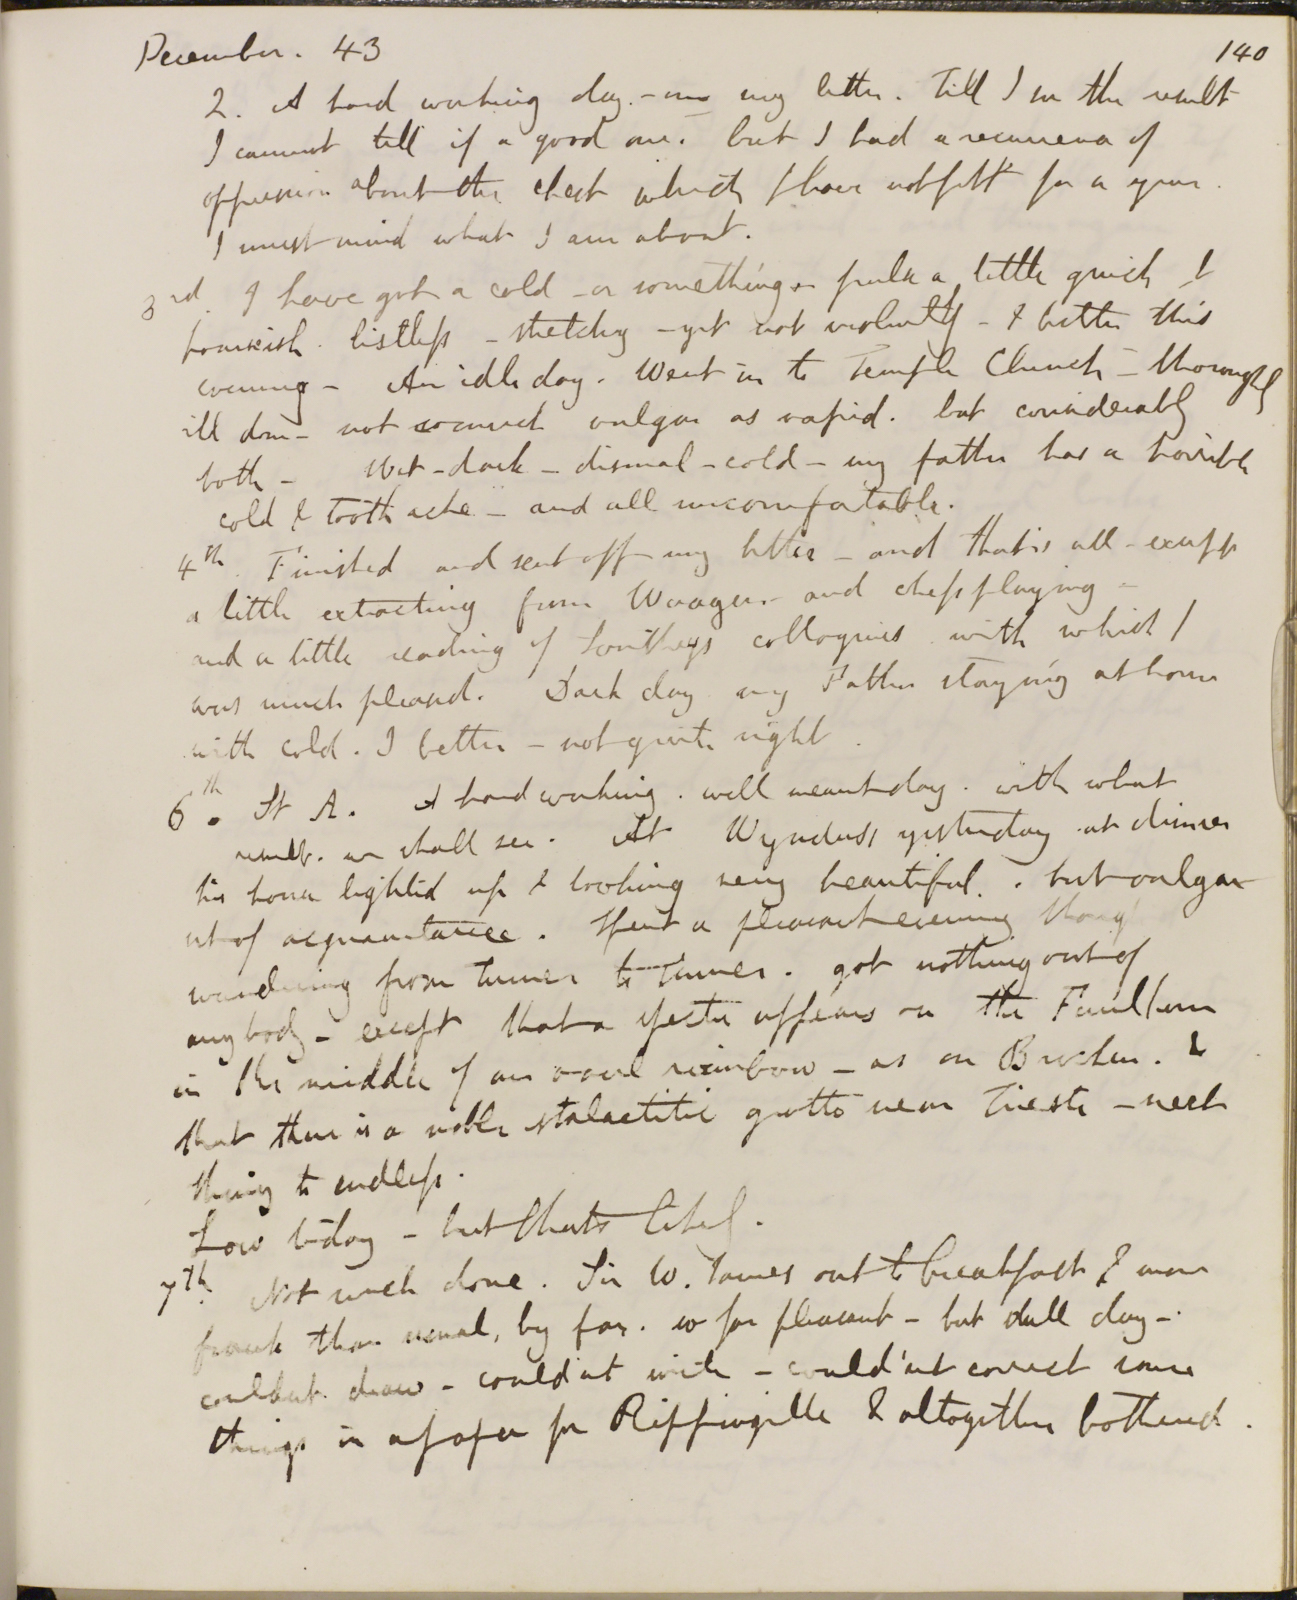 December. 43
140
2. A hard working day. - on my letter. Till I see the result
I cannot tell if a good one. but I had a recurrence of
oppression about the chest which I have not felt for a year.
I must mind what I am about.
3rd. I have got a cold - or something - pulse a little quick &
feverish. listless - stretchy - yet not violently - & better this
evening - An idle day. Went in to Temple Church - thoroughly
ill done - not so much vulgar as vapid. but considerably
both - Wet - dark - dismal - cold - my father has a horrible
cold & tooth ache - and all uncomfortable.
4th. Finished and sent off my letter - and that is all - except
a little extracting from Waagen - and chess playing -
and a little reading of Southeys colloquies with which I
was much pleased. Dark day my Father staying at home
with cold. I better - not quite right.
6th. St A. A hard working. well meant day. with what
result. we shall see. At Wynduss yesterday at dinner
his house lighted up & looking very beautiful. but vulgar
set of acquaintance. Spent a pleasant evening though
wandering from Turner to Turner. got nothing out of
anybody - except that a spectre appears on the Faulhorn
in the middle of an oval rainbow - as on Brocken. &
that there is a noble stalactitic grotto near Trieste - next
thing to endless.
Low to-day - but thats
7th. Not much done. Sir W. James out to breakfast & more
frank than usual, by far. so far pleasant - but dull day -
couldnt draw - could'nt write - could'nt correct some
things in a paper for Rippingille & altogether bothered.